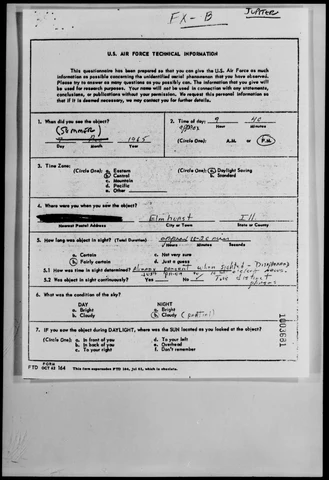 FX-B JUPITER
U.S. AIR FORCE TECHNICAL INFORMATION
This questionnaire has been prepared so that you can give the U.S. Air Force as much
information as possible concerning the unidentified aerial phenomenon that you have observed.
Please try to answer as many questions as you possibly can. The information that you give will
be used for research purposes. Your name will not be used in connection with any statements,
conclusions, or publications without your permission. We request this personal information so
that if it is deemed necessary, we may contact you for further details.
1. When did you see the object?
(SUMMER)
1965
Day Month Year
2. Time of day: 9 40
approx Hour Minutes
(Circle One): A.M. or P.M.
3. Time Zone:
(Circle One): a. Eastern
b. Central
c. Mountain
d. Pacific
e. Other
(Circle One): a. Daylight Saving
b. Standard
4. Where were you when you saw the object?
Elmhurst Ill.
Nearest Postal Address City or Town State or County
5. How long was object in sight? (Total Duration)
Hours Minutes Seconds
a. Certain c. Not very sure
b. Fairly certain d. Just a guess
5.1 How was time in sight determined? Already present when sighted -
5.2 Was object in sight continuously? Yes No
6. What was the condition of the sky?
DAY NIGHT
a. Bright a. Bright
b. Cloudy b. Cloudy (partial)
7. IF you saw the object during DAYLIGHT, where was the SUN located as you looked at the object?
(Circle One): a. In front of you d. To your left
b. In back of you e. Overhead
c. To your right f. Don't remember
FORM
FTD OCT 62 164 This form supersedes FTD 164, Jul 61, which is obsolete.
1003681